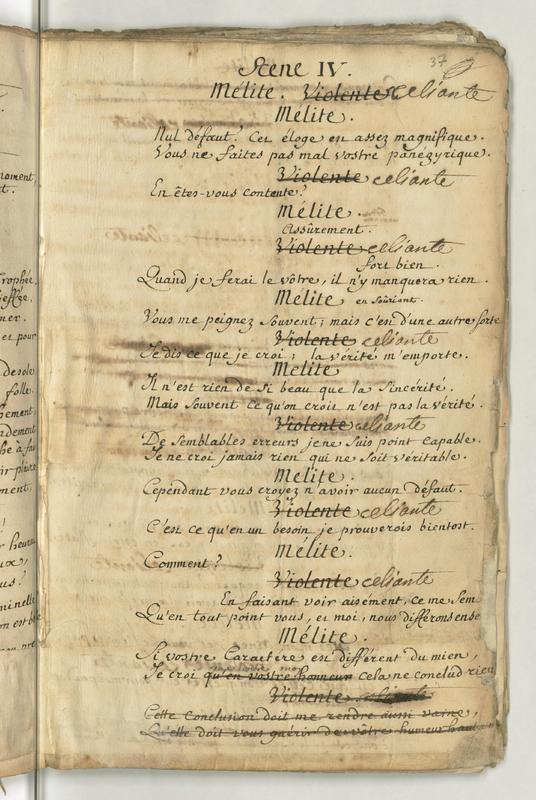 37
Scene IV.
Mélite. Violente celiante
Mélite.
Nul défaut! Cet éloge est assez magnifique.
Vous ne faites pas mal vostre panégyrique.
Violente celiante
En êtes-vous contente?
Mélite.
Assûrement.
Violente celiante
fort bien.
Quand je ferai le vôtre, il n'y manquera rien.
Mélite en souriant.
Vous me peignez souvent; mais c'est d'une autre sorte
Violente celiante
Je dis ce que je croi; la vérité m'emporte.
Mélite
Il n'est rien de si beau que la sincérité.
Mais souvent ce qu'on croit n'est pas la vérité.
Violente celiante
De semblables erreurs je ne suis point capable.
Je ne croi jamais rien qui ne soit véritable.
Mélite.
Cependant vous croyez n'avoir aucun défaut.
Violente celiante
C'est ce qu'en un besoin je prouverois bientost.
Mélite.
Comment?
Violente celiante
En faisant voir aisément, ce me sem
Qu'en tout point vous, et moi, nous différons ense
Mélite.
Si vostre Caractère est différent du mien,
Je croi qu'en vostre honneur cela ne conclud rien
Violente celiante
Cette conclusion doit me rendre aussi vaine,
Qu'elle doit vous guérir de vôtre humeur hautaine